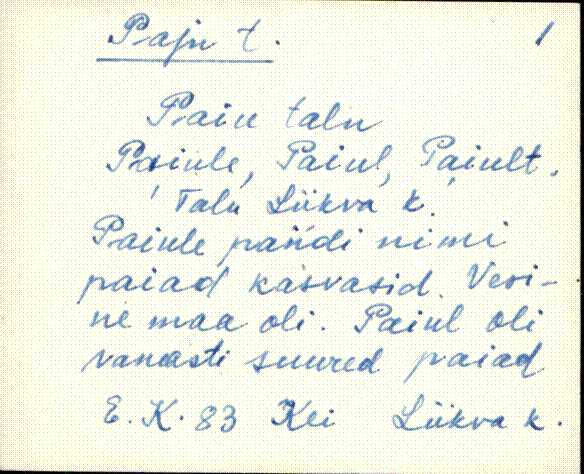 Paju t. 1
Paiu talu
Paiule, Paiul, Paiult.
Talu Liikva k.
Paiule pandi nimi
paiad kasvasid. Vesi-
ne maa oli. Paiul oli
vanasti suured paiad
E. K. 83 Kei Liikva k.